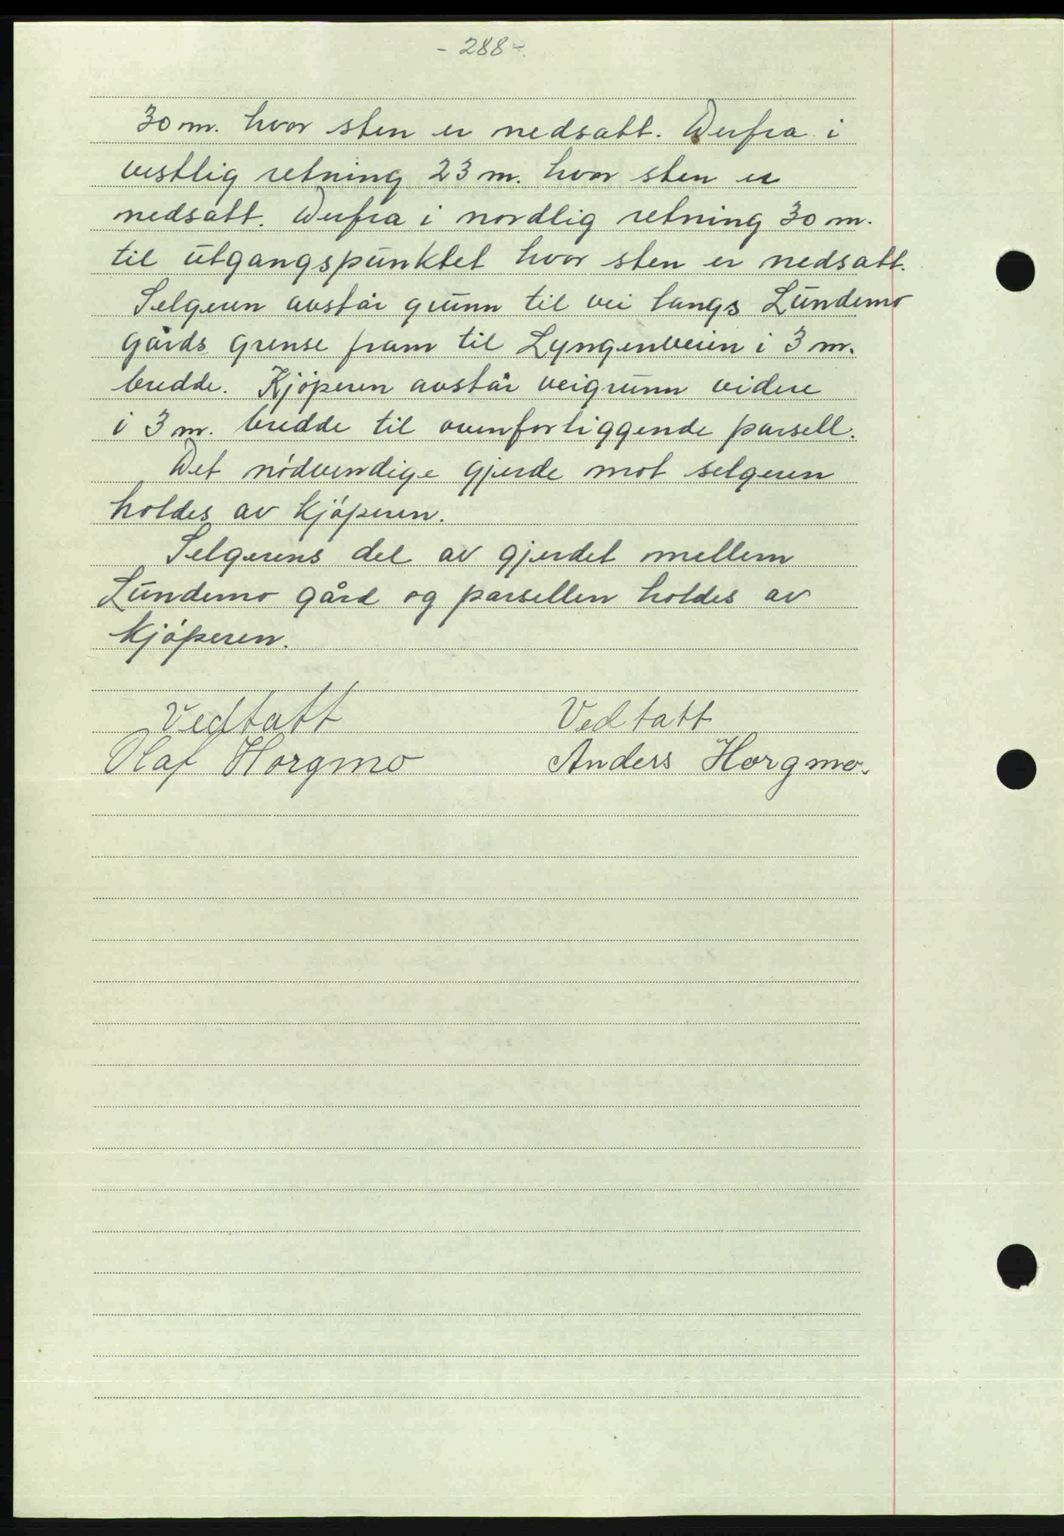 - 288 -.
30 m. hvor sten er nedsatt. Derfra i
vestlig retning 23 m. hvor sten er
nedsatt. Derfra i nordlig retning 30 m.
til utgangspunktet hvor sten er nedsatt.
Selgeren avstår grunn til vei langs Lundemo
gårds grense fram til Lyngenveien i 3 m.
bredde. Kjøperen avstår veigrunn videre
i 3 m. bredde til ovenforliggende parsell.
Det nødvendige gjerde mot selgeren
holdes av kjøperen.
Selgerens del av gjerdet mellem
Lundemo gård og parsellen holdes av
kjøperen.
Vedtatt Vedtatt
Olaf Horgmo Anders Horgmo.